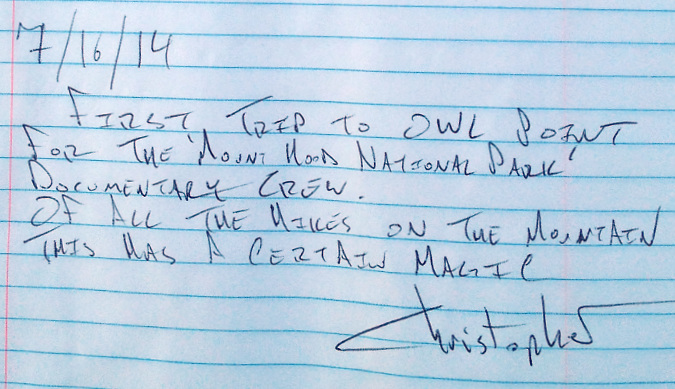 7/16/14
FIRST TRIP TO OWL POINT
FOR THE 'MOUNT HOOD NATIONAL PARK'
DOCUMENTARY CREW.
OF ALL THE HIKES ON THE MOUNTAIN
THIS HAS A CERTAIN MAGIC
Christopher